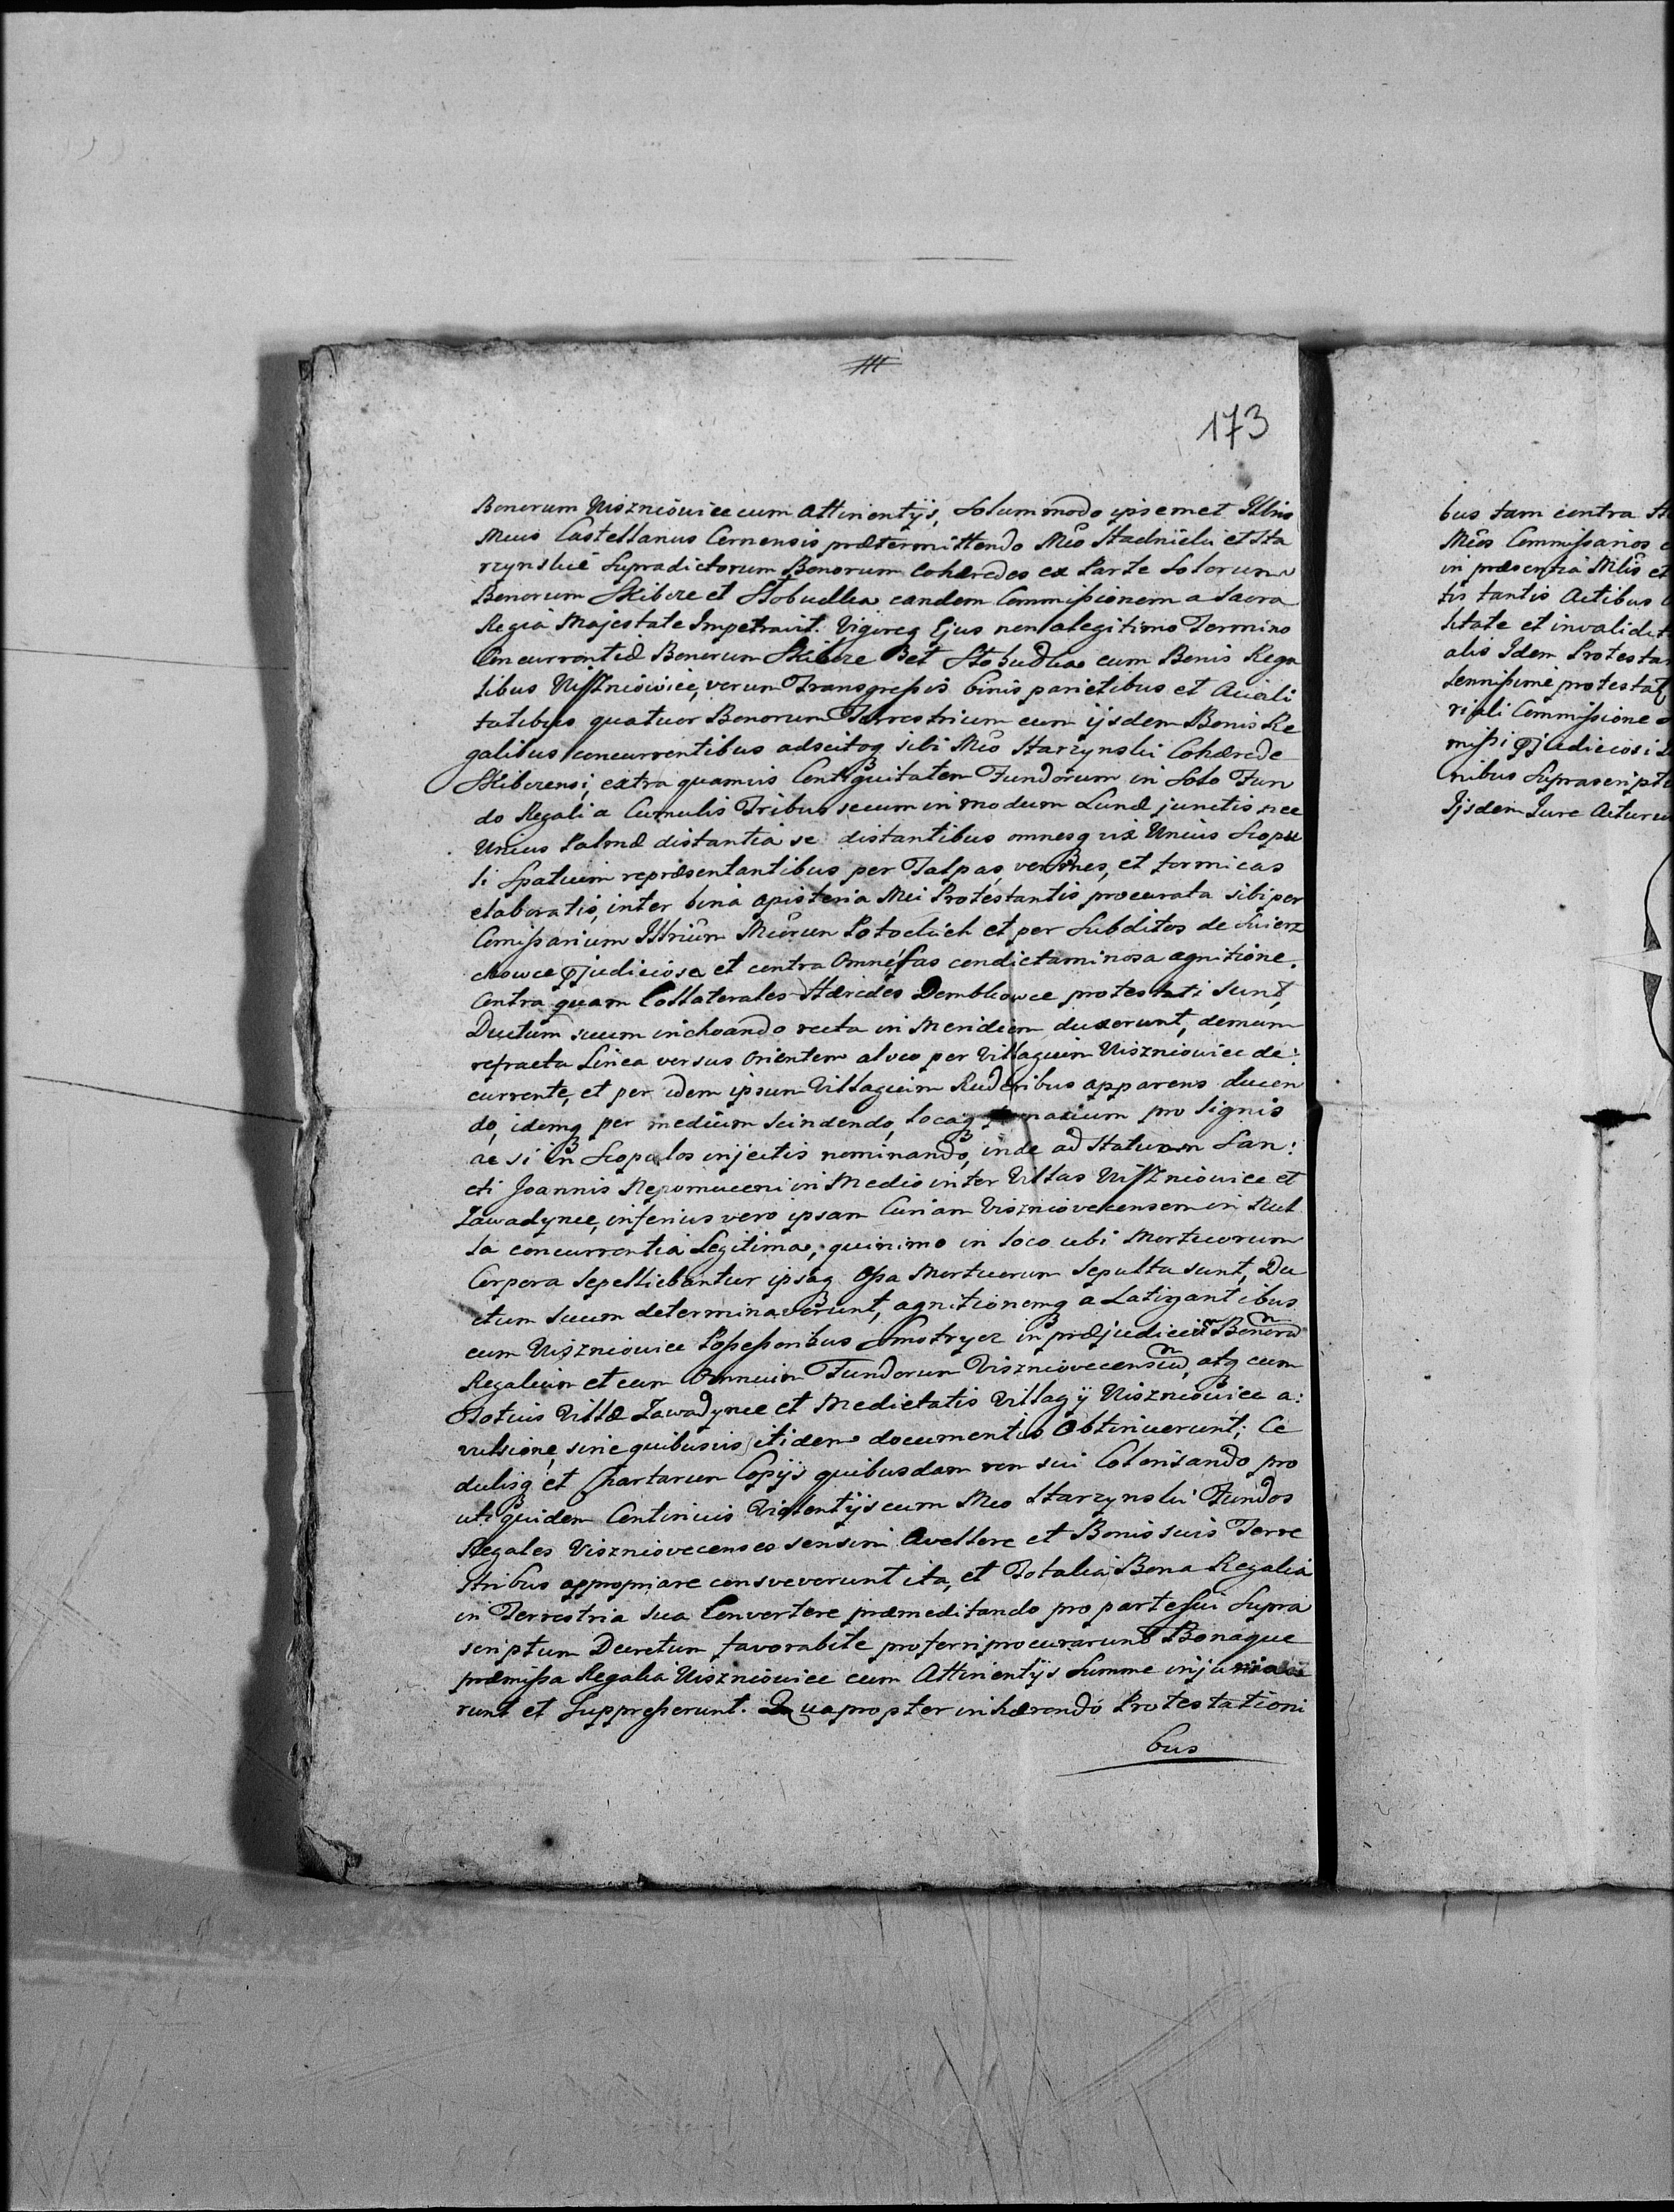 173
Bonorum Viszniowice cum Attinentÿs, solummodo ipsemet Illmo
Mcus Castellanus Cernensis prætermittendo Mco Stadnicki et Sta
rzynskie Supradictorum Bonorum Cohæredes ex Parte Solorum
Bonorum Skibize et Stobudka eandem Commissionem a Sacra
Regia Majestate Impetravit. Vigoreq Ejus non a legitimo Termino
Concurrentiæ Bonorum Skibize et Stobudka cum Bonis Rega
libus Viszniowice, verum Transgressis binis parietibus et Aciali
tatibus quatuor Bonorum Terrestrium cum ijsdem Bonis Re
galibus concurrentibus adscitoq sibi Mco Starzynski Cohærede
Skibizensi, extra quamvis Contiguitatem Fundorum in Solo Fun
do Regali a Cumulis Tribus secum in modum Lunæ junctis nec
Unius Palmæ distantia se distantibus omnesq vix Unius Scopu
li Spatium repræsentantibus per Talpas, vermes, et formicas
elaboratis, inter bina apisteria Mei Protestantis procurata sibi per
Comissarium Illrium Mcorum Potockich et per Subditos de Swierz
chowce pjudiciosa et contra Omne fas condictaminosa agnitione.
Contra quam Collaterales Hæredes Dembkowce protestati sunt,
Ductum suum inchoando recta in Meridiem duxerunt, demum
refracta Linea versus Orientem alveo per Villagium Viszniowice de:
currente, et per idem ipsum Villagium Ruderibus apparens ducen
do, idemq per medium scindendo, locaq narium pro Signis
ac si in Scopulos injectis nominando, inde ad Statuam San:
cti Joannis Nepomuceni in Medio inter Villas Viszniowice et
Zawadynce, inferius vero ipsam Curiam Viszniovecensem in Nul
la concurrentia Legitima, quinimo in loco ubi Mortuorum
Corpora Sepelliebantur ipsaq Ossa Mortuorum Sepulta sunt, Du
ctum suum determinaverunt, agnitionemq a Latizantibus
cum Viszniowice Possessoribus Smotrycz in præjudicium Bonorum
Regalium et cum Omnium Fundorum Viszniovecensium, atq cum
Totius Villæ Zawadynce et Medietatis Villagÿ Viszniowice a:
vulsione, sine quibusvis itidem documentis Obtinuerunt; Ce
dulisq et Chartarum Copÿs quibusdam rem sui Colorisando pro
ut quidem Continuis Violentÿs cum Mco Starzynski Fundos
Regales Viszniovecenses sensim Avellere et Bonis suis Terre
stribus appropriare consveverunt ita, et Totalia Bona Regalia
in Terrestria sua Convertere præmeditando pro parte sui Supra
scriptum Decretum favorabile proferri procurarunt Bonaque
præmissa Regalia Viszniowice cum Attinentÿs Summe injuria
runt et Suppresserunt. Quapropter inhærendo Protestationi
bus
bus tam contra
Mcos Commissarios
in præsentia Mllis et
tis tantis Actibus
litate et invalidit
alis Idem Protesta
lennissime protestat,
riali Commissione
missi pjudiciosi
nibus Suprascript
Ijsdem Jure Acturu